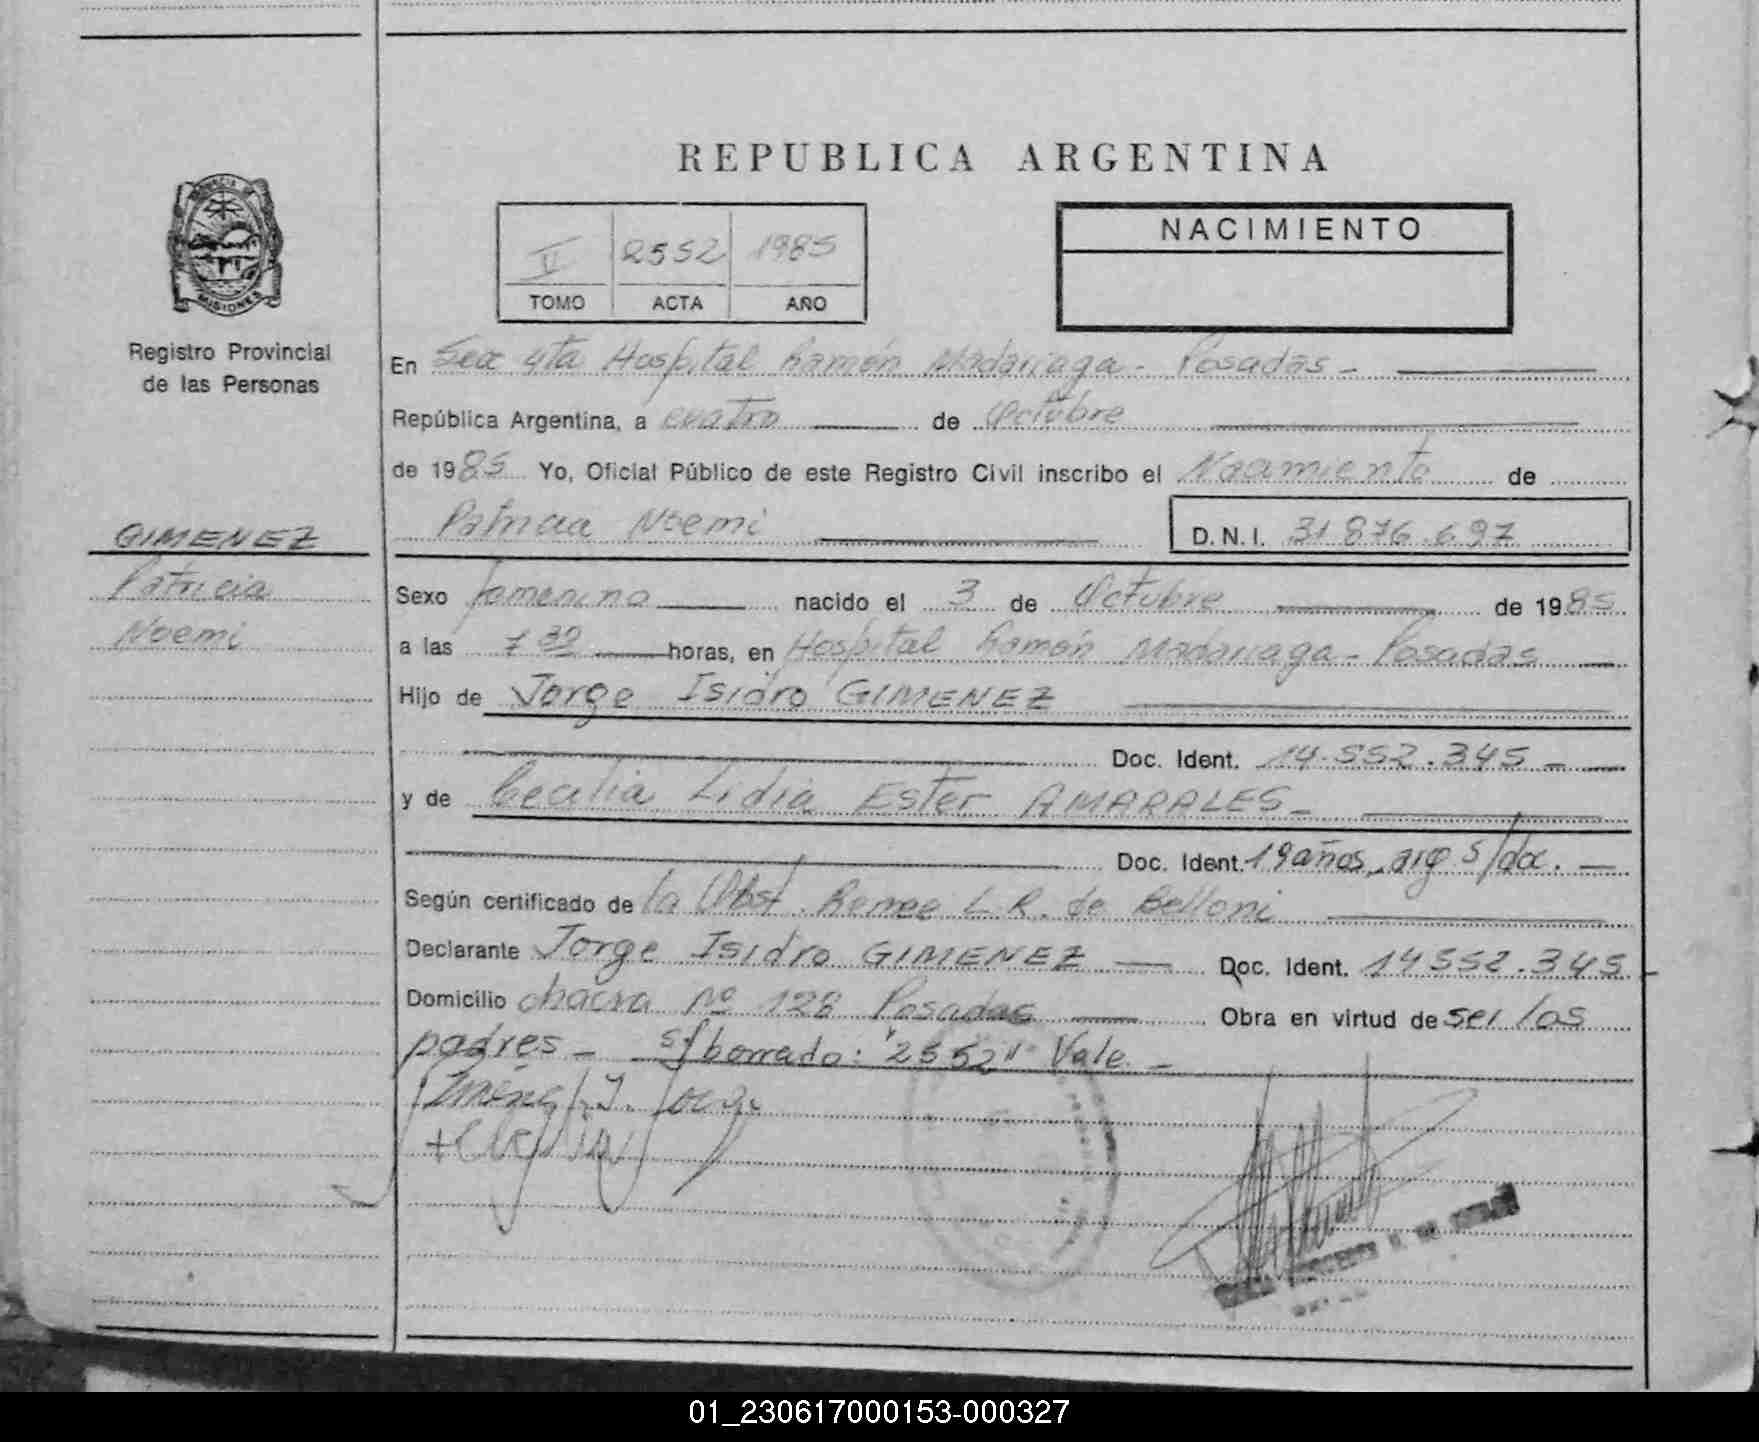 REPUBLICA ARGENTINA
MISIONES
Registro Provincial
de las Personas
II 2552 1985
TOMO ACTA AÑO
NACIMIENTO
En Secc 4ta Hospital Ramón Madariaga - Posadas -
República Argentina, a cuatro de Octubre
de 1985 Yo, Oficial Público de este Registro Civil inscribo el Nacimiento de
Patricia Noemi D.N.I. 31 876.697
GIMENEZ
Patricia
Noemi
Sexo femenino nacido el 3 de Octubre de 1985
a las 7 30 horas, en Hospital Ramón Madariaga - Posadas
Hijo de Jorge Isidro GIMENEZ
Doc. Ident. 14.552.345 -
y de Cecilia Lidia Ester AMARALES -
Doc. Ident. 19 años, arg s/doc.
Según certificado de la Obst. Renee L. R. de Belloni
Declarante Jorge Isidro GIMENEZ Doc. Ident. 14552.345
Domicilio chacra Nº 128 Posadas Obra en virtud de ser los
padres - s/borrado: "2552" Vale. -
01_230617000153-000327